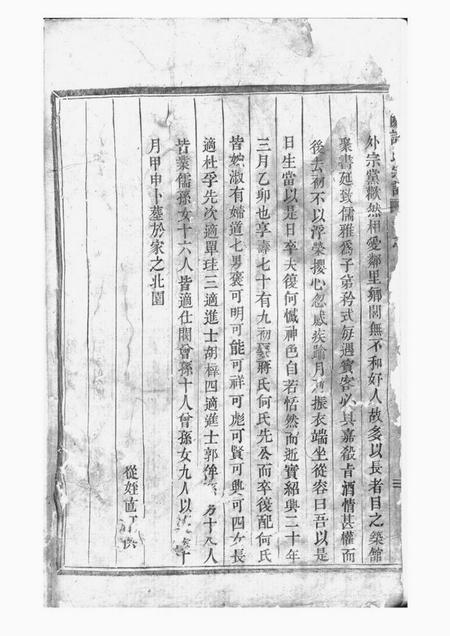 外宗黨歡然相愛鄰里鄉閭無不和好人故多以長者目之築館
聚書延致儒雅爲子弟矜式每遇賓客必具嘉殽旨酒情甚懽而
後去初不以浮榮攖心忽感疾踰月 振衣端坐從容曰吾以是
日生當以是日卒夫復何憾神色自若恬然而逝實紹興二十年
三月乙卯也享壽七十有九初娶蔣氏何氏先公而卒後配何氏
皆婉淑有婦道七男襃可明可能可祥可彪可賢可興可四女長
適杜孚先次適單珪三適進士胡梓四適進士郭 十 人
皆業儒孫女十六人皆適仕閥曾孫十人曾孫女九人以 十
月甲申卜葬於家之北園
從姪直